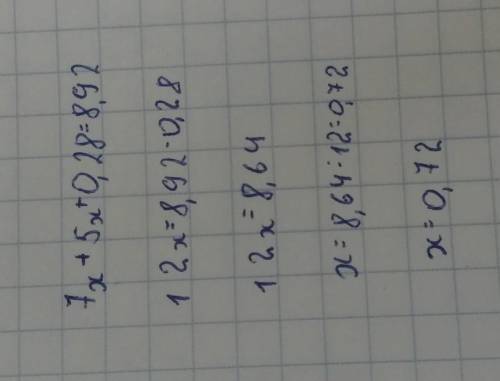 7x+5x+0,28=8,92
12x=8,92-0,28
12x=8,64
x=8,64:12=0,72
x=0,72